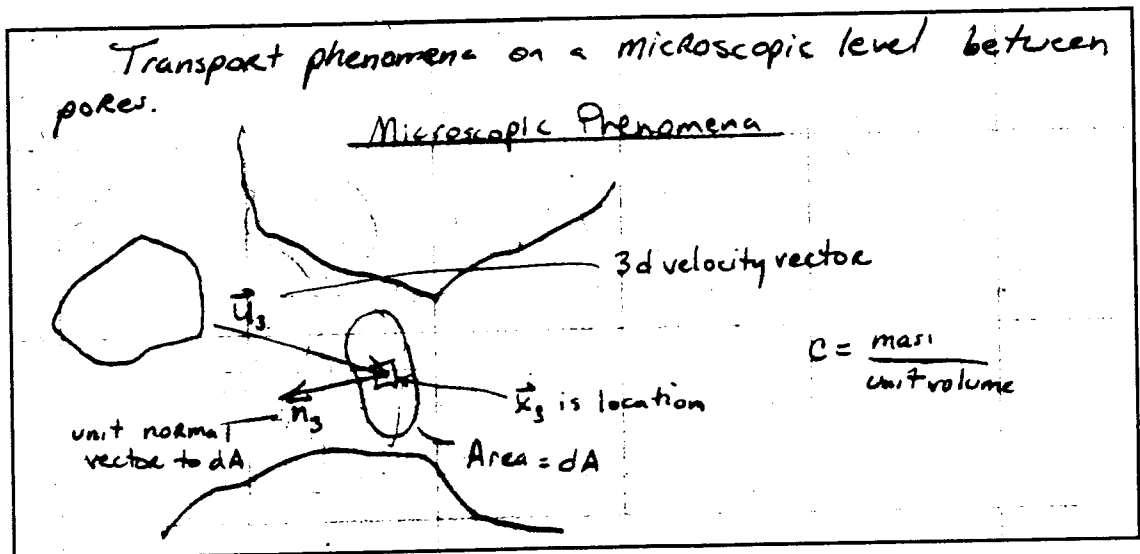 Transport phenomena on a microscopic level between
pores.
Microscopic Phenomena
3d velocity vector
u⃗₃
C = mass / unit volume
n⃗₃
x⃗₃ is location
unit normal
vector to dA
Area = dA